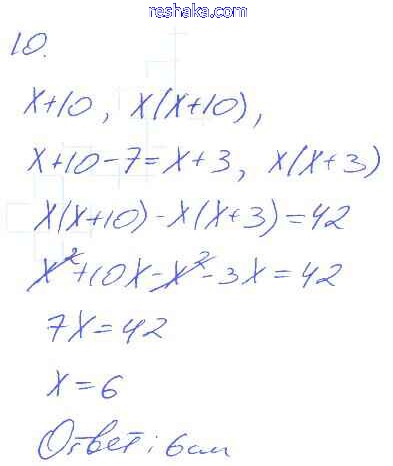 reshaka.com
10.
x+10, x(x+10),
x+10-7=x+3, x(x+3)
x(x+10)-x(x+3)=42
x²+10x-x²-3x=42
7x=42
x=6
Ответ: 6см